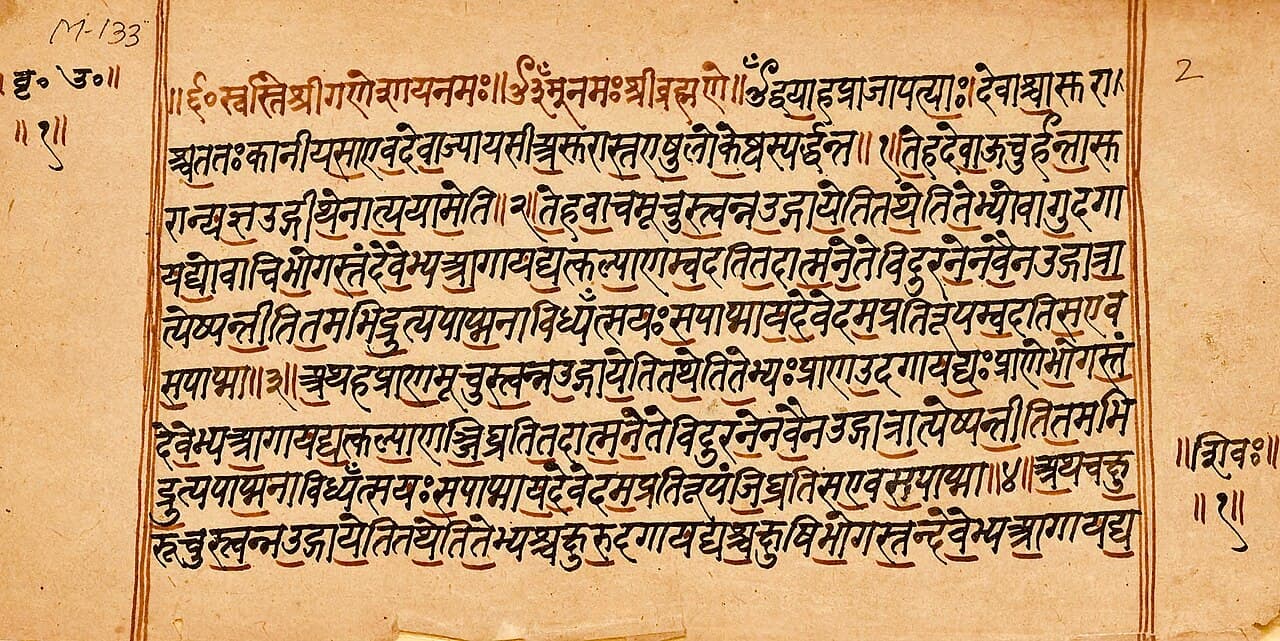 M-133
2
॥ बृ॰ उ॰॥
॥ १॥
॥६॰स्वस्तिश्रीगणेशायनमः॥ॐनमःश्रीब्रह्मणे॥ॐद्वयाहप्राजापत्याः।देवाश्चासुरा।
श्चततःकानीयसाएवदेवाज्यायसीअसुरास्तएषुलोकेष्वस्पर्द्धन्त॥१॥तेहदेवाऊचुर्हन्तासु
रान्यज्ञउद्गीथेनात्ययामेति॥२॥तेहवाचमूचुस्त्वन्नउद्गायेतितथेतितेभ्योवागुदगा
यद्योवाचिभोगस्तंदेवेभ्यआगायद्यत्कल्याणम्वदतितदात्मनेतेविदुरनेनवैनउद्गात्रा
त्येष्यन्तीतितमभिद्रुत्यपाप्मनाविध्यँत्सयःसपाप्मायदेवेदमप्रतिरूपम्वदतिसएव
सपाप्मा॥३॥अथहप्राणमूचुस्त्वन्नउद्गायेतितथेतितेभ्यःप्राणउदगायद्यःप्राणेभोगस्तं
देवेभ्यआगायद्यत्कल्याणञ्जिघ्रतितदात्मनेतेविदुरनेनवैनउद्गात्रात्येष्यन्तीतितमभि
द्रुत्यपाप्मनाविध्यँत्सयःसपाप्मायदेवेदमप्रतिरूपंजिघ्रतिसएवसपाप्मा॥४॥अथचक्षु
रूचुस्त्वन्नउद्गायेतितथेतितेभ्यश्चक्षुरुदगायद्यश्चक्षुषिभोगस्तन्देवेभ्यआगायद्य
॥शिवः॥
॥ १॥